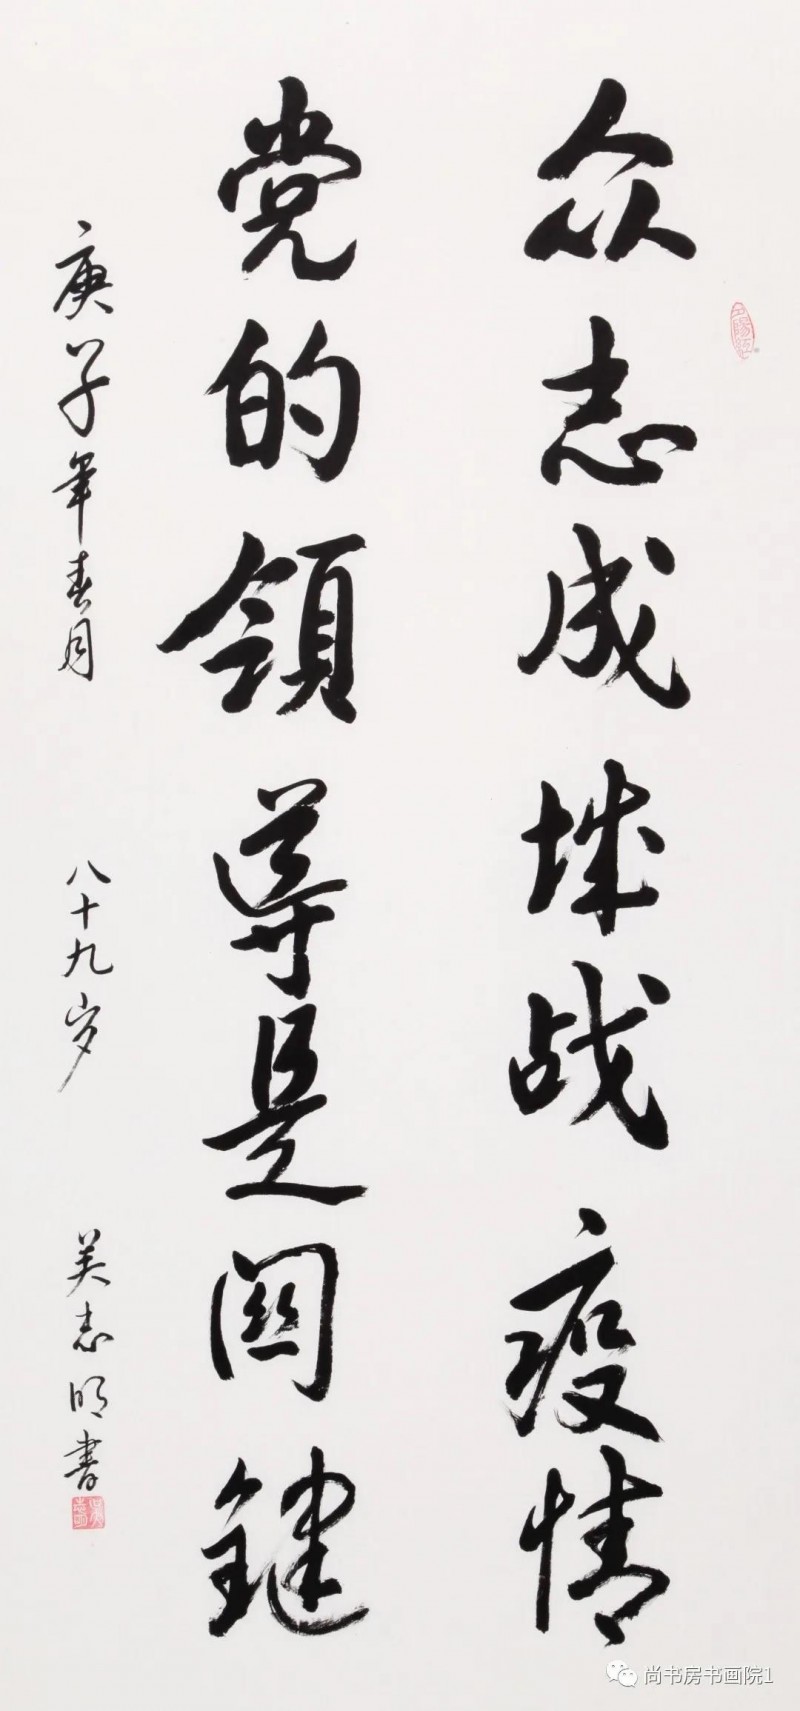 众志成城战疫情
党的领导是関键
庚子年春月 八十九岁 吴志明書
尚书房书画院1